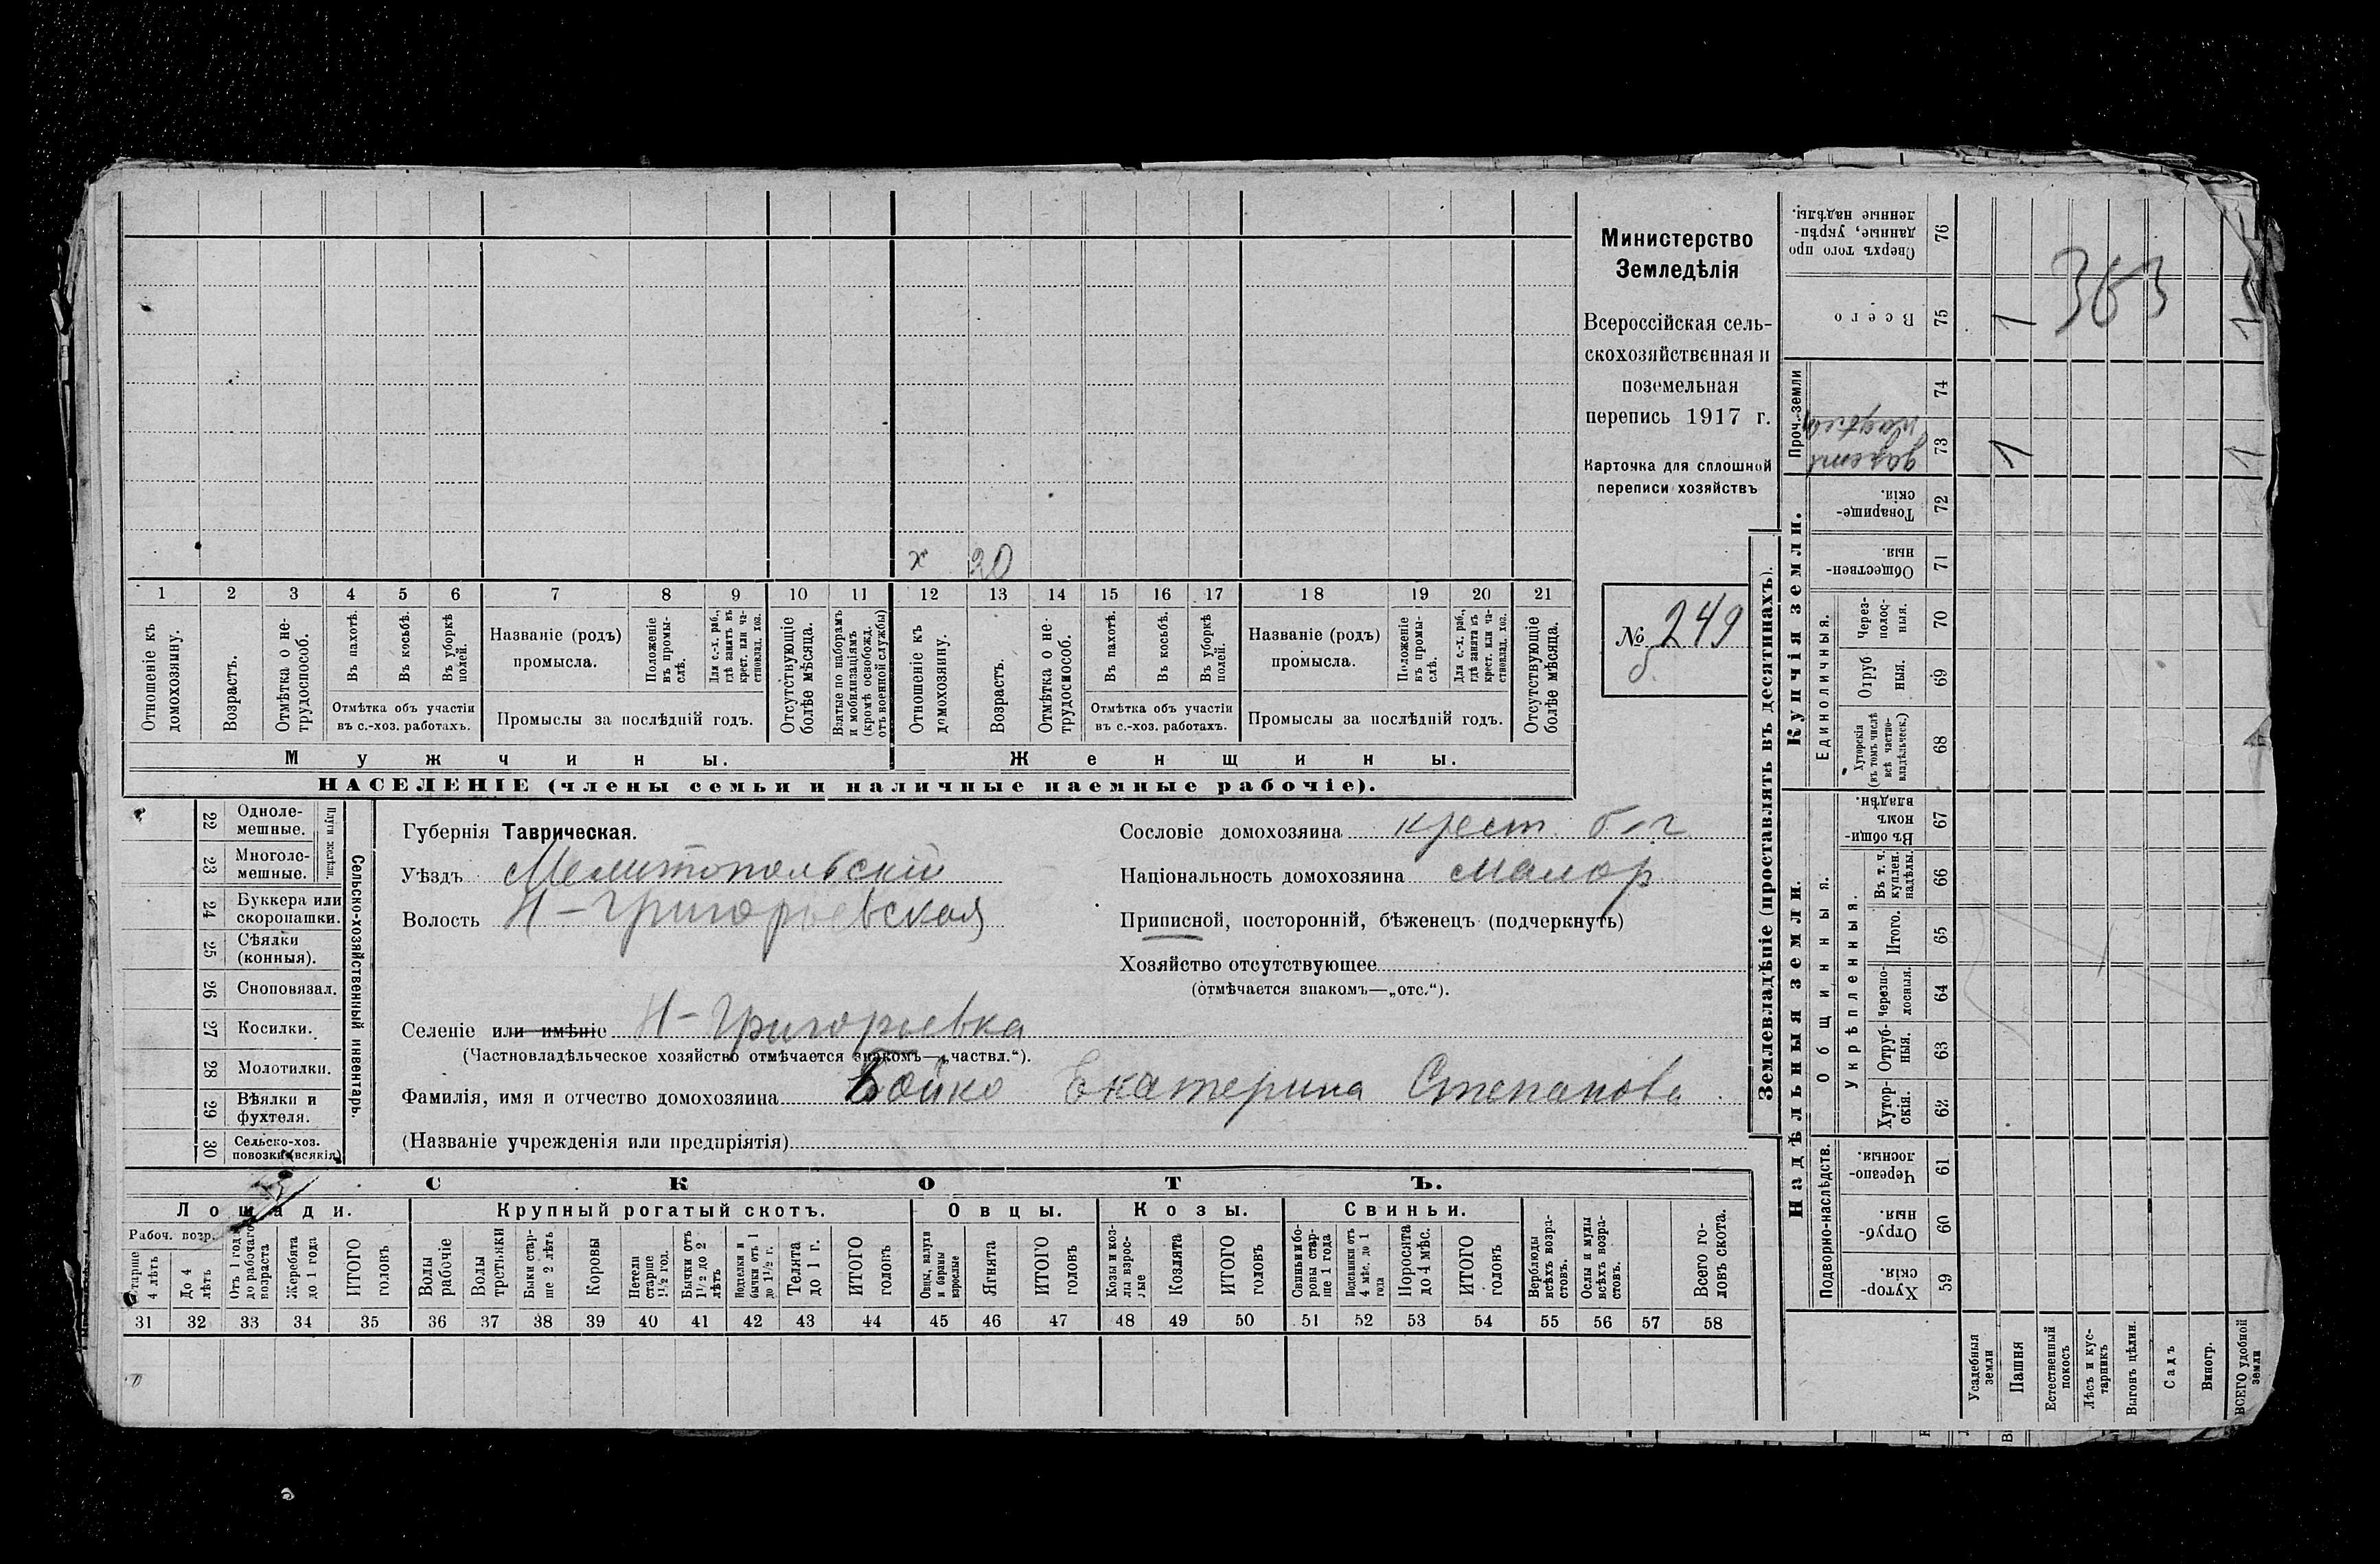 х 20
1 2 3 4 5 6 7 8 9 10 11 12 13 14 15 16 17 18 19 20 21
Отношеніе къ домохозяину.
Возрастъ.
Отмѣтка о не-
трудоспособ.
Въ пахотѣ.
Въ косьбѣ.
Въ уборкѣ
полей.
Отмѣтка объ участіи
въ с.-хоз. работахъ.
Названіе (родъ)
промысла.
Положеніе
въ промы-
слѣ.
Для с.-х. раб.,
гдѣ занятъ въ
крест. или ча-
стновлад. хоз.
Промыслы за послѣдній годъ.
Отсутствующіе
болѣе мѣсяца.
Взятые по наборамъ
и мобилизаціямъ
(кромѣ освобожд.
отъ военной службы)
Отношеніе къ
домохозяину.
Возрастъ.
Отмѣтка о не-
трудоспособ.
Въ пахотѣ.
Въ косьбѣ.
Въ уборкѣ
полей.
Отмѣтка объ участіи
въ с.-хоз. работахъ.
Названіе (родъ)
промысла.
Положеніе
въ промы-
слѣ.
Для с.-х. раб.,
гдѣ занята въ
крест. или ча-
стновлад. хоз.
Промыслы за послѣдній годъ.
Отсутствующіе
болѣе мѣсяца.
Мужчины.
Женщины.
НАСЕЛЕНІЕ (члены семьи и наличные наемные рабочіе).
Министерство
Земледѣлія
Всероссійская сель-
скохозяйственная и
поземельная
перепись 1917 г.
Карточка для сплошной
переписи хозяйствъ
№ 249
22 Одноле-
мешные.
23 Многоле-
мешные.
24 Буккера или
скоропашки.
25 Сѣялки
(конныя).
26 Сноповязал.
27 Косилки.
28 Молотилки.
29 Вѣялки и
фухтеля.
30 Сельско-хоз.
повозки (всякія)
Сельско-хозяйственный инвентарь.
Губернія Таврическая.
Уѣздъ Мелитопольскій
Волость Н-Григорьевская
Селеніе или имѣніе Н-Григорьевка
(Частновладѣльческое хозяйство отмѣчается знакомъ—„частвл.“).
Фамилія, имя и отчество домохозяина Бойко Екатерина Степанова
(Названіе учрежденія или предпріятія)
Сословіе домохозяина крест.
Національность домохозяина малор
Приписной, посторонній, бѣженецъ (подчеркнуть)
Хозяйство отсутствующее
(отмѣчается знакомъ—„отс.“).
СКОТЪ.
Лошади. Крупный рогатый скотъ. Овцы. Козы. Свиньи.
Рабоч. возр.
Старше
4 лѣтъ
До 4
лѣтъ
Отъ 1 года
до рабочаго
возраста
Жеребята
до 1 года
ИТОГО
головъ
Волы
рабочіе
Волы
Быки стар-
ше 2 лѣтъ
Коровы
Нетели
старше
1½ год.
Бычки отъ
1½ до 2
лѣтъ
бычки отъ 1
до 1½ г.
Телята
до 1 г.
ИТОГО
головъ
Овцы, валухи
и бараны
взрослые
Ягнята
ИТОГО
головъ
Козы и коз-
лы взрос-
лые
Козлята
ИТОГО
головъ
Свиньи и бо-
ровы стар-
ше 1 года
Подсвинки отъ
4 мѣс. до 1
года
Поросята
до 4 мѣс.
ИТОГО
головъ
Верблюды
всѣхъ возра-
стовъ.
Ослы и мулы
всѣхъ возра-
стовъ.
Всего го-
ловъ скота.
31 32 33 34 35 36 37 38 39 40 41 42 43 44 45 46 47 48 49 50 51 52 53 54 55 56 57 58
Землевладѣніе (проставлять въ десятинахъ).
Сверхъ того про
данные, укрѣп-
ленные надѣлы.
76
Всего
75
363
1
1
Проч. земли
74
73
1
1
Купчія земли.
Товарище-
скія.
72
Обществен-
ныя.
71
Единоличныя.
Через-
полос-
ныя.
70
Отруб
ныя.
69
Хуторскія
(въ томъ числѣ
всѣ частно-
владѣльческ.)
68
Надѣльныя земли.
Общинныя.
Въ общи-
номъ
владѣн.
67
Укрѣпленныя.
Въ т. ч.
куплен.
надѣлы.
66
Итого.
65
Черезпо-
лосныя.
64
Отруб-
ныя.
63
Хутор-
скія.
62
Подворно-наслѣдств.
Черезпо-
лосныя.
61
Отруб-
ныя.
60
Хутор-
скія.
59
Усадебныя
земли
Пашня
Естественный
покосъ
Лѣсъ и кус-
тарникъ
Выгонъ цѣлин.
Садъ
Виногр.
ВСЕГО удобной
земли